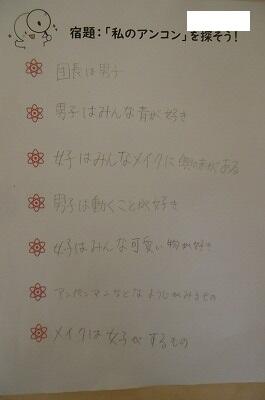 宿題:「私のアンコン」を探そう!
団長は男子
男子はみんな青が好き
女子はみんなメイクに興味がある
男子は動くことが好き
女子はみんな可愛い物が好き
アンパンマンなどはようじがみるもの
メイクは女子がするもの